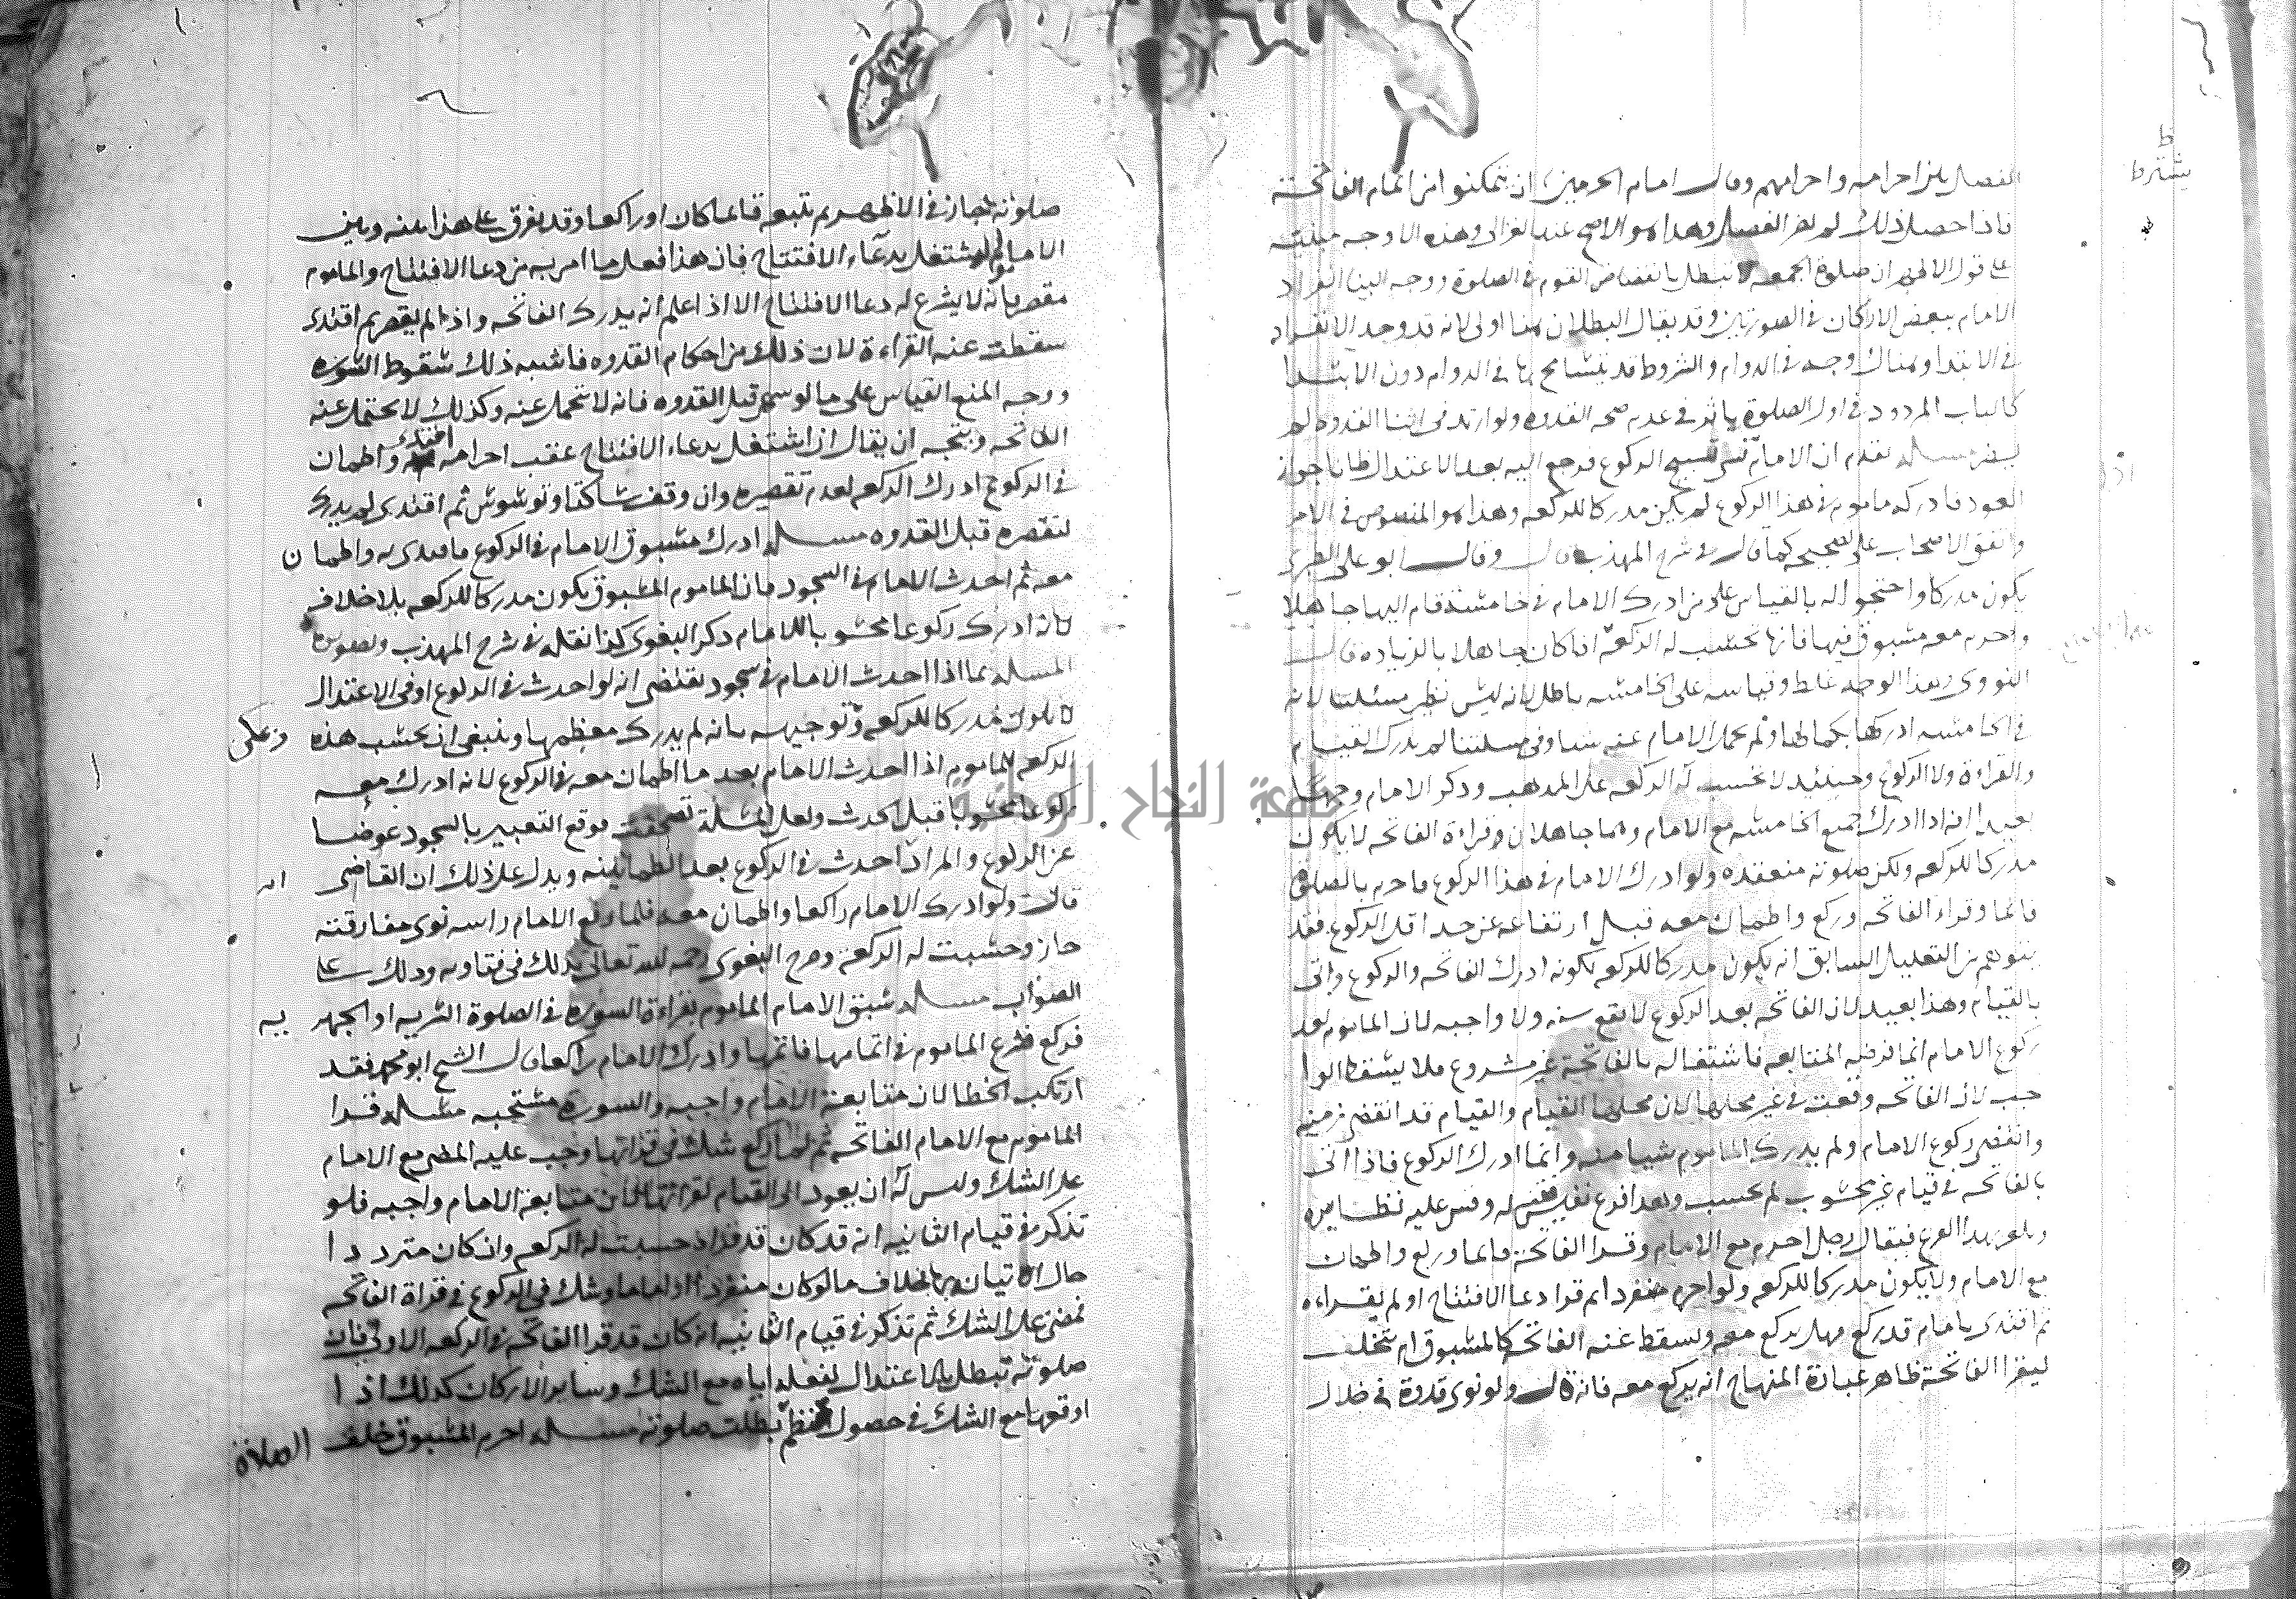 الفصل بين احرامه واحرامهم وقال امام الحرمين ان تمكنوا من اتمام الفاتحة
فاذا حصل ذلك لم يضر الفصل وهذا هو الاصح عند الغزالي وهذه الاوجه مبنية
على قول الاظهر ان صلوة الجمعه لا تبطل بانفضاض القوم في الصلوة ووجه البنا انفراد
الامام ببعض الاركان في الصورتين وقد يقال البطلان هنا اولى لانه قد وجد الانفراد
في الابتدا وهناك وجد في الدوام والشروط قد يتسامح بها في الدوام دون الابتدا
كالباب المردود في اول الصلوة ياثر في عدم صحة القدوه ولو ارتد في اثنا القدوه لم
يضر مسله تقدم ان الامام نسي تسبيح الركوع فرجع اليه بعد الاعتدال ظانا جواز
العود فادركه ماموم في هذا الركوع لم يكن مدركا للركعه وهذا هو المنصوص في الام
واتفق الاصحاب على تصحيحه كما قال في شرح المهذب قال وقال ابو على الطبرى
يكون مدركا واحتجوا له بالقياس على من ادرك الامام في خامسة قام اليها جاهلا
واحرم معه مسبوق فيها فانها تحسب له الركعه اذا كان جاهلا بالزياده قال
النووى وهذا الوجه غلط وقياسه على الخامسه باطل لانه ليس نظير مسئلتنا لانه
في الخامسه ادركها بكمالها ولم يحمل الامام عنه شيا وفي مسلتنا لم يدرك القيام
والقراءة ولا الركوع وحينئيد لا تحسب له الركعه على المدهب ودكر الامام وجها
بعيدا انه اذا ادرك جميع الخامسه مع الامام وهما جاهلان وقراءة الفاتحه لا يكون
مدركا للركعه ولكن صلوته منعقده ولو ادرك الامام في هذا الركوع فاحرم بالصلوة
قائما وقراء الفاتحه وركع واطمان معه قبل ارتفاعه عن حد اقل الركوع فقد
يتوهم من التعليل السابق انه يكون مدركا للركعه لكونه ادرك الفاتحه والركوع واتى
بالقيام وهذا بعيد لان الفاتحه بعد الركوع لا تقع سنه ولا واجبه لان الماموم بعد
ركوع الامام انما فرضه المتابعه فاشتغاله بالفاتحة غير مشروع فلا يسقط الوا
جب لان الفاتحه وقعت في غير محلها لان محلها القيام والقيام قد انقضى زمنه
وانقضى ركوع الامام ولم يدرك الماموم شيا منه وانما ادرك الركوع فاذا اتى
بالفاتحه في قيام غير محسوب لم تحسب وهذا فرع نفيس وقس عليه نظايره
بهذا الفرع فيقال رجل احرم مع الامام وقرا الفاتحة قائما وركع واطمان
مع الامام ولا يكون مدركا للركعه ولو احرم منفردا ثم قرا دعا الافتتاح او لم يقراءه
ثم اقتدى بامام قد ركع فهل يركع معه وتسقط عنه الفاتحه كالمسبوق ام يتخلف
ليقرا الفاتحة ظاهر عبارة المنهاج انه يركع معه فانه قال ولو نوى قدوة في خلال
صلوته جاز في الاظهر ثم يتبعه قائما كان او راكعا وقد يفرق على هذا بينه وبين
الامام لو اشتغل بدعاء الافتتاح فان هذا فعل ما امر به من دعا الافتتاح والماموم
مقصر بانه لا يشرع له دعا الافتتاح الا اذا علم انه يدرك الفاتحه واذا لم يقصر ثم اقتدى
سقطت عنه القراءة لان ذلك من احكام القدوه فاشبه ذلك سقوط السوره
ووجه المنع القياس على ما لو سهى قبل القدوه فانه لا يتحمل عنه وكذلك لا يحتمل عنه
الفاتحه ويتجه ان يقال ان اشتغل بدعاء الافتتاح عقب احرامه اقتدى واطمان
في الركوع ادرك الركعه لعدم تقصيره وان وقف ساكتا وتوسوس ثم اقتدى لم يدرك
لتقصره قبل القدوه مسله ادرك مسبوق الامام في الركوع فاقتدى به واطمان
معه ثم احدث الامام في السجود فان الماموم المسبوق يكون مدركا للركعه بلا خلاف
لانه ادرك ركوعا محسوبا للامام دكره البغوى كذا نقله في شرح المهذب وتصوير
المسله بما اذا احدث الامام في سجود يقتضى انه لو احدث في الركوع او في الاعتدال
لا يكون مدركا للركعه وتوجيهه بانه لم يدرك معظمها وينبغى ان تحسب هذه
الركعه للماموم اذا احدث الامام بعد ما اطمان معه في الركوع لانه ادرك معه
ركوعا محسوبا قبل الحدث ولعل المسلة تصحفت فوقع التعبير بالسجود عوضا
عن الركوع والمراد احدث في الركوع بعد الطمانينه ويدل على ذلك ان القاضى
قال ولو ادرك الامام راكعا واطمان معه فلما رفع الامام راسه نوى مفارقته
جاز وحسبت له الركعه وصرح البغوى رحمه الله تعالى بذلك في فتاويه ودلك على
الصواب مسله سبق الامام الماموم بقراءة السورة في الصلوة السريه او الجهر يه
فركع فشرع الماموم في اتمامها فاتمها وادرك الامام راكعا قال الشيخ ابو محمد فقد
ارتكب الخطا لان متابعة الامام واجبه والسوره مستحبه مسله قرا
الماموم مع الامام الفاتحه ثم لما ركع شك في قراتها وجب عليه المضى مع الامام
على الشك وليس له ان يعود الى القيام لقرائتها لان متابعة الامام واجبه فلو
تذكر في قيام الثانيه انه قد كان قد قراء حسبت له الركعه وان كان مترددا
حال الاتيان بها بخلاف ما لو كان منفردا او اماما وشك في الركوع في قراة الفاتحه
فمضى على الشك ثم تذكر في قيام الثانيه انه كان قد قرا الفاتحه في الركعه الاولى فان
صلوته تبطل بالاعتدال لفعله اياه مع الشك وساير الاركان كذلك اذا
اوقعها مع الشك في حصول بطلت صلوته مسله احرم المسبوق خلف
الصلاة